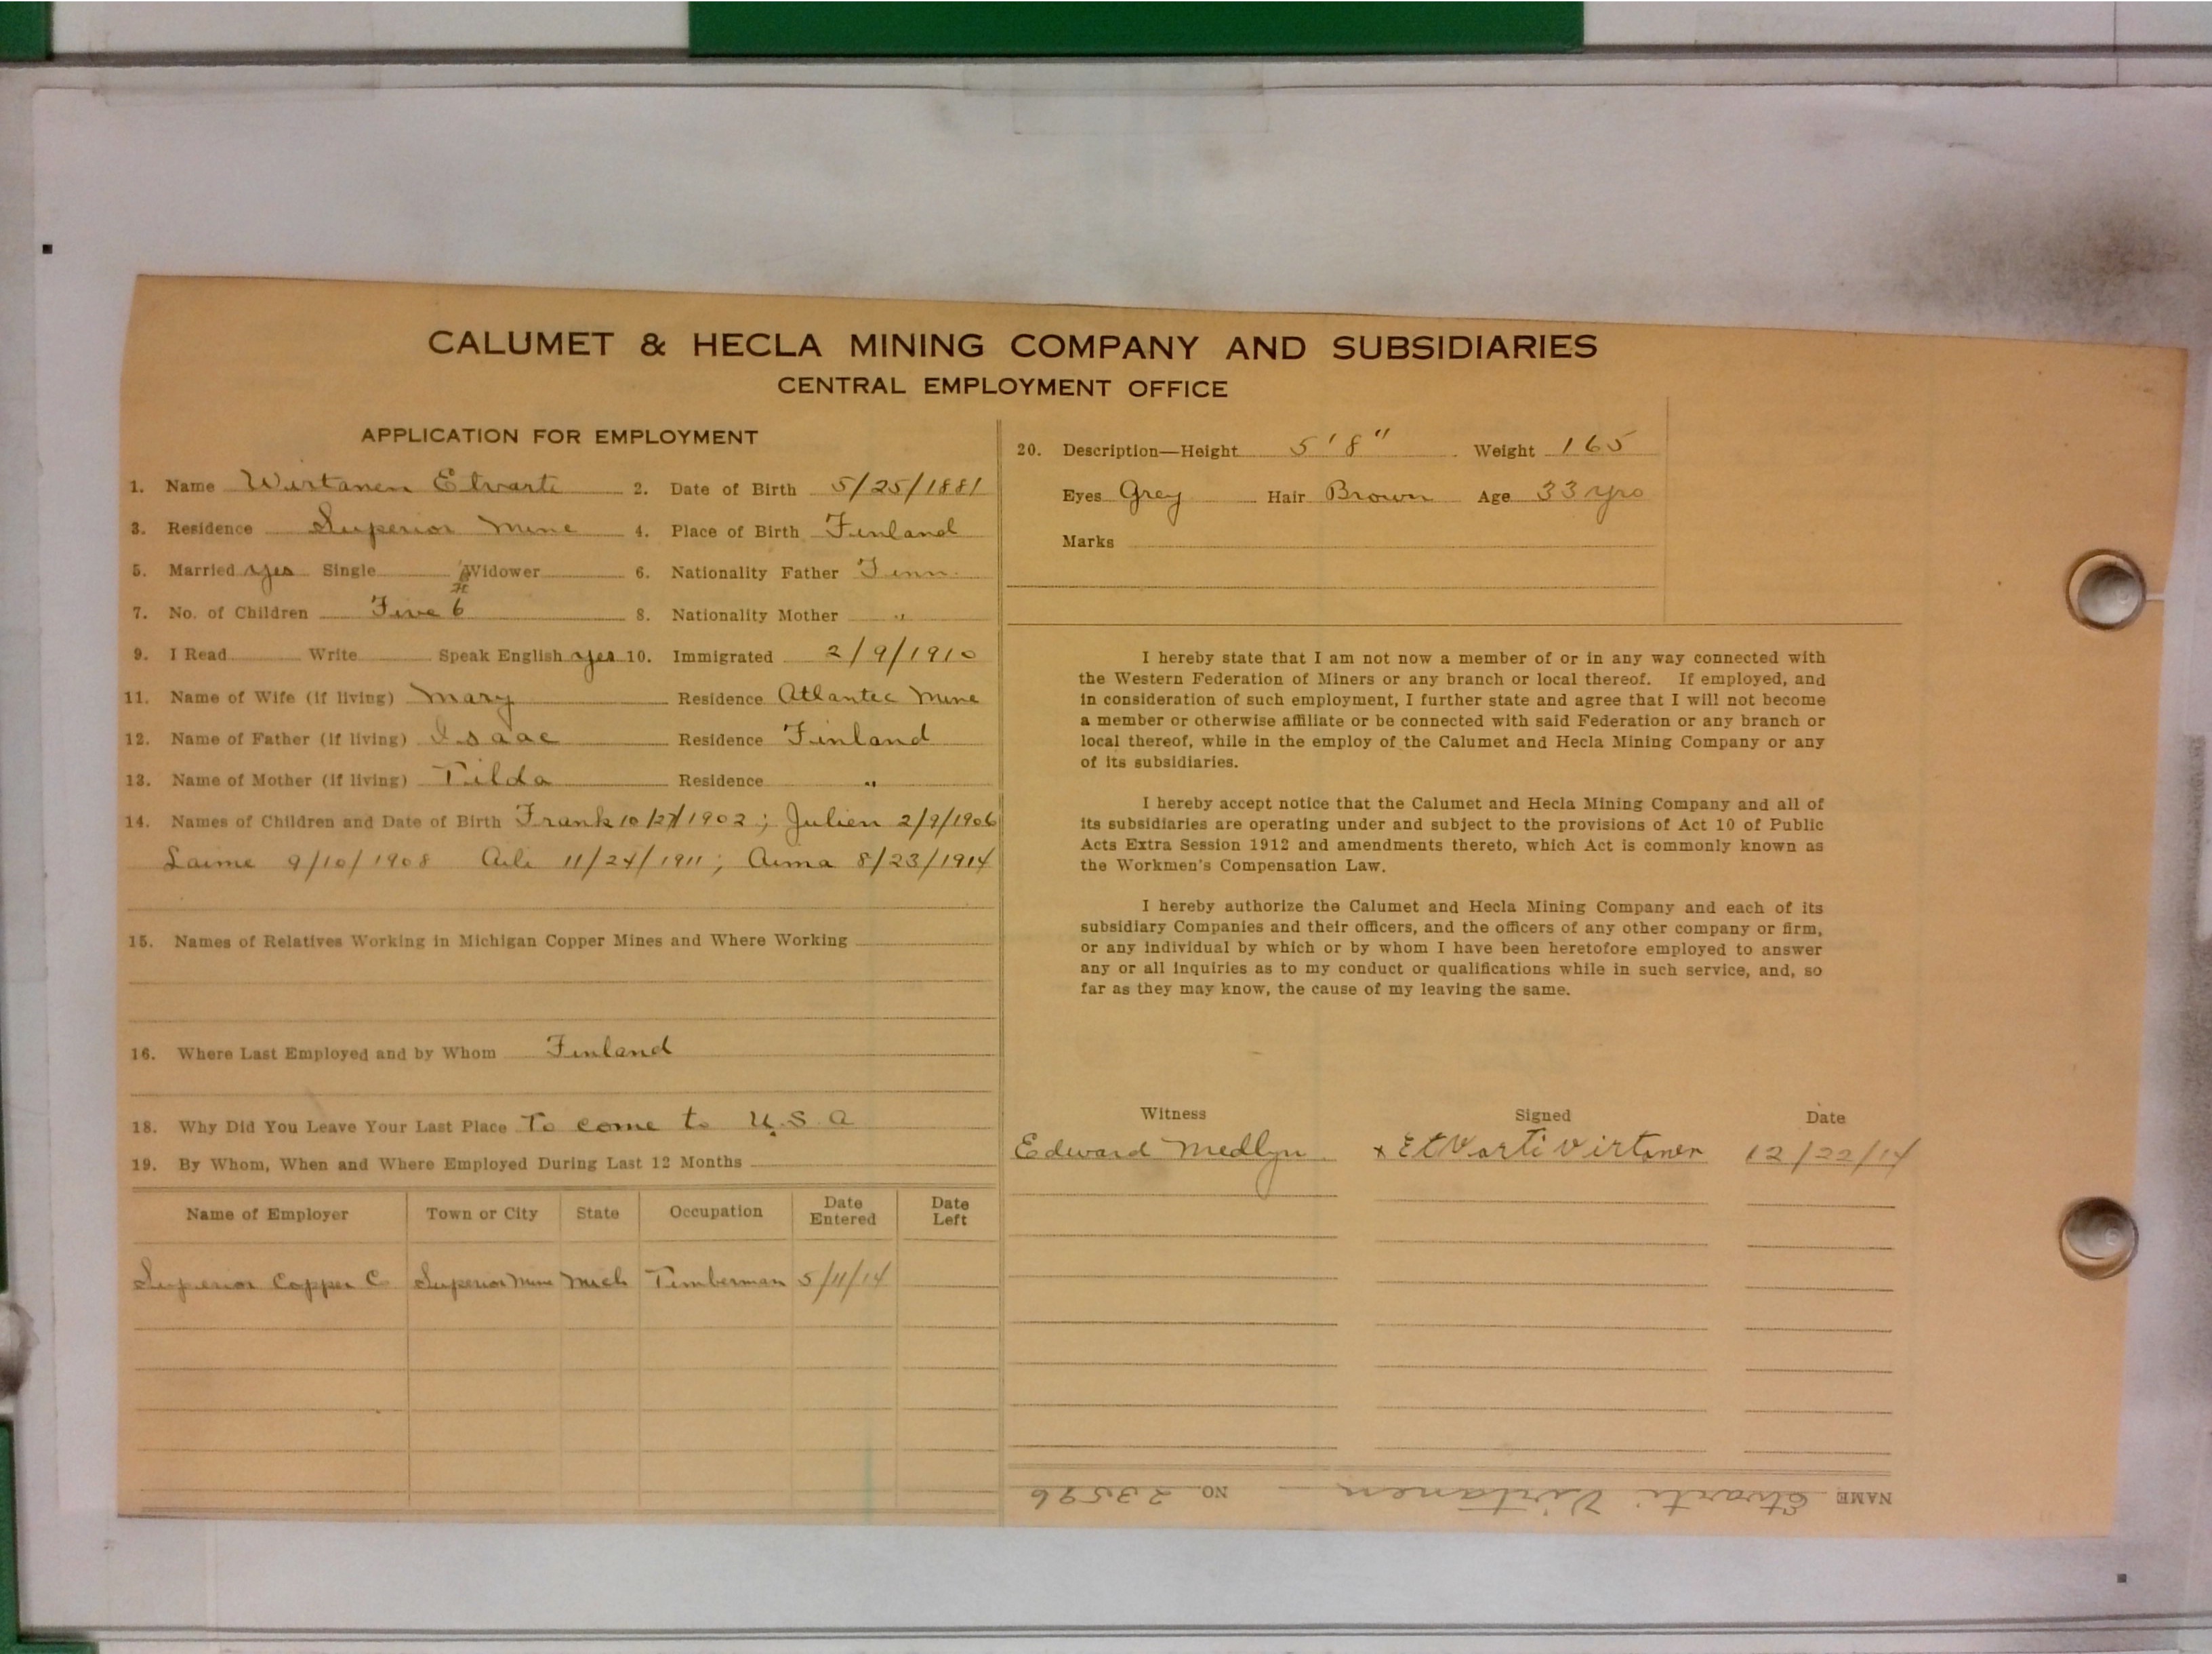 CALUMET & HECLA MINING COMPANY AND SUBSIDIARIES
CENTRAL EMPLOYMENT OFFICE
APPLICATION FOR EMPLOYMENT
1. Name Wirtanen Etvarti 2. Date of Birth 5/25/1881
3. Residence Superior Mine 4. Place of Birth Finland
5. Married Yes Single Widower 6. Nationality Father Finn
7. No. of Children Five 6 8. Nationality Mother "
9. I Read Write Speak English yes 10. Immigrated 2/9/1910
11. Name of Wife (if living) Mary Residence Atlantic Mine
12. Name of Father (if living) Isaac Residence Finland
13. Name of Mother (if living) Tilda Residence "
14. Names of Children and Date of Birth Frank 10/27/1902; Julien 2/9/1906
Laime 9/10/1908 11/24/1911; 8/23/1914
15. Names of Relatives Working in Michigan Copper Mines and Where Working
16. Where Last Employed and by Whom Finland
18. Why Did You Leave Your Last Place To come to U.S.A
19. By Whom, When and Where Employed During Last 12 Months
Name of Employer Town or City State Occupation Date Entered Date Left
Superior Copper C Superior Mine Mich Timberman 5/11/14
20. Description—Height 5'8" Weight 165
Eyes Grey Hair Brown Age 33 yrs
Marks
I hereby state that I am not now a member of or in any way connected with
the Western Federation of Miners or any branch or local thereof. If employed, and
in consideration of such employment, I further state and agree that I will not become
a member or otherwise affiliate or be connected with said Federation or any branch or
local thereof, while in the employ of the Calumet and Hecla Mining Company or any
of its subsidiaries.
I hereby accept notice that the Calumet and Hecla Mining Company and all of
its subsidiaries are operating under and subject to the provisions of Act 10 of Public
Acts Extra Session 1912 and amendments thereto, which Act is commonly known as
the Workmen's Compensation Law.
I hereby authorize the Calumet and Hecla Mining Company and each of its
subsidiary Companies and their officers, and the officers of any other company or firm,
or any individual by which or by whom I have been heretofore employed to answer
any or all inquiries as to my conduct or qualifications while in such service, and, so
far as they may know, the cause of my leaving the same.
Witness Signed Date
Edward Medlyn x EtVarti Virtanen 12/22/14
NAME Etvarti Virtanen NO. 23596